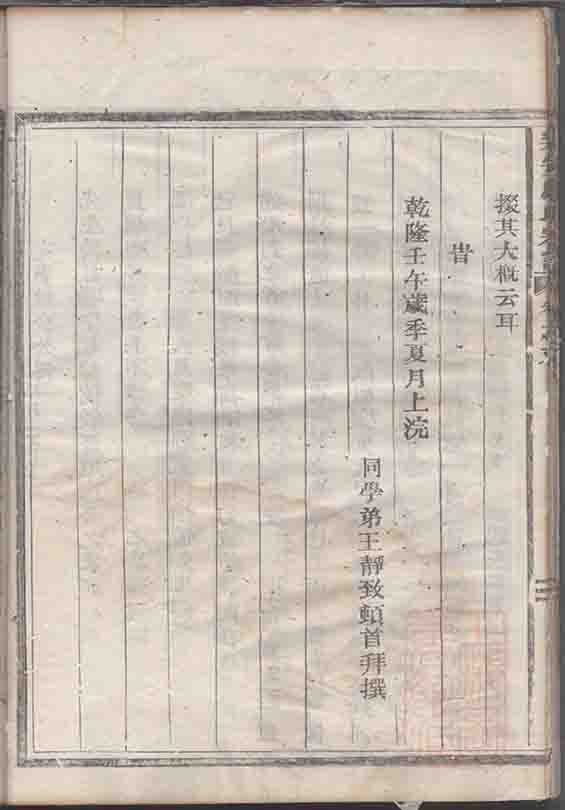 掇其大概云耳
旹
乾隆壬午歲季夏月上浣
同學弟王靜致頓首拜撰